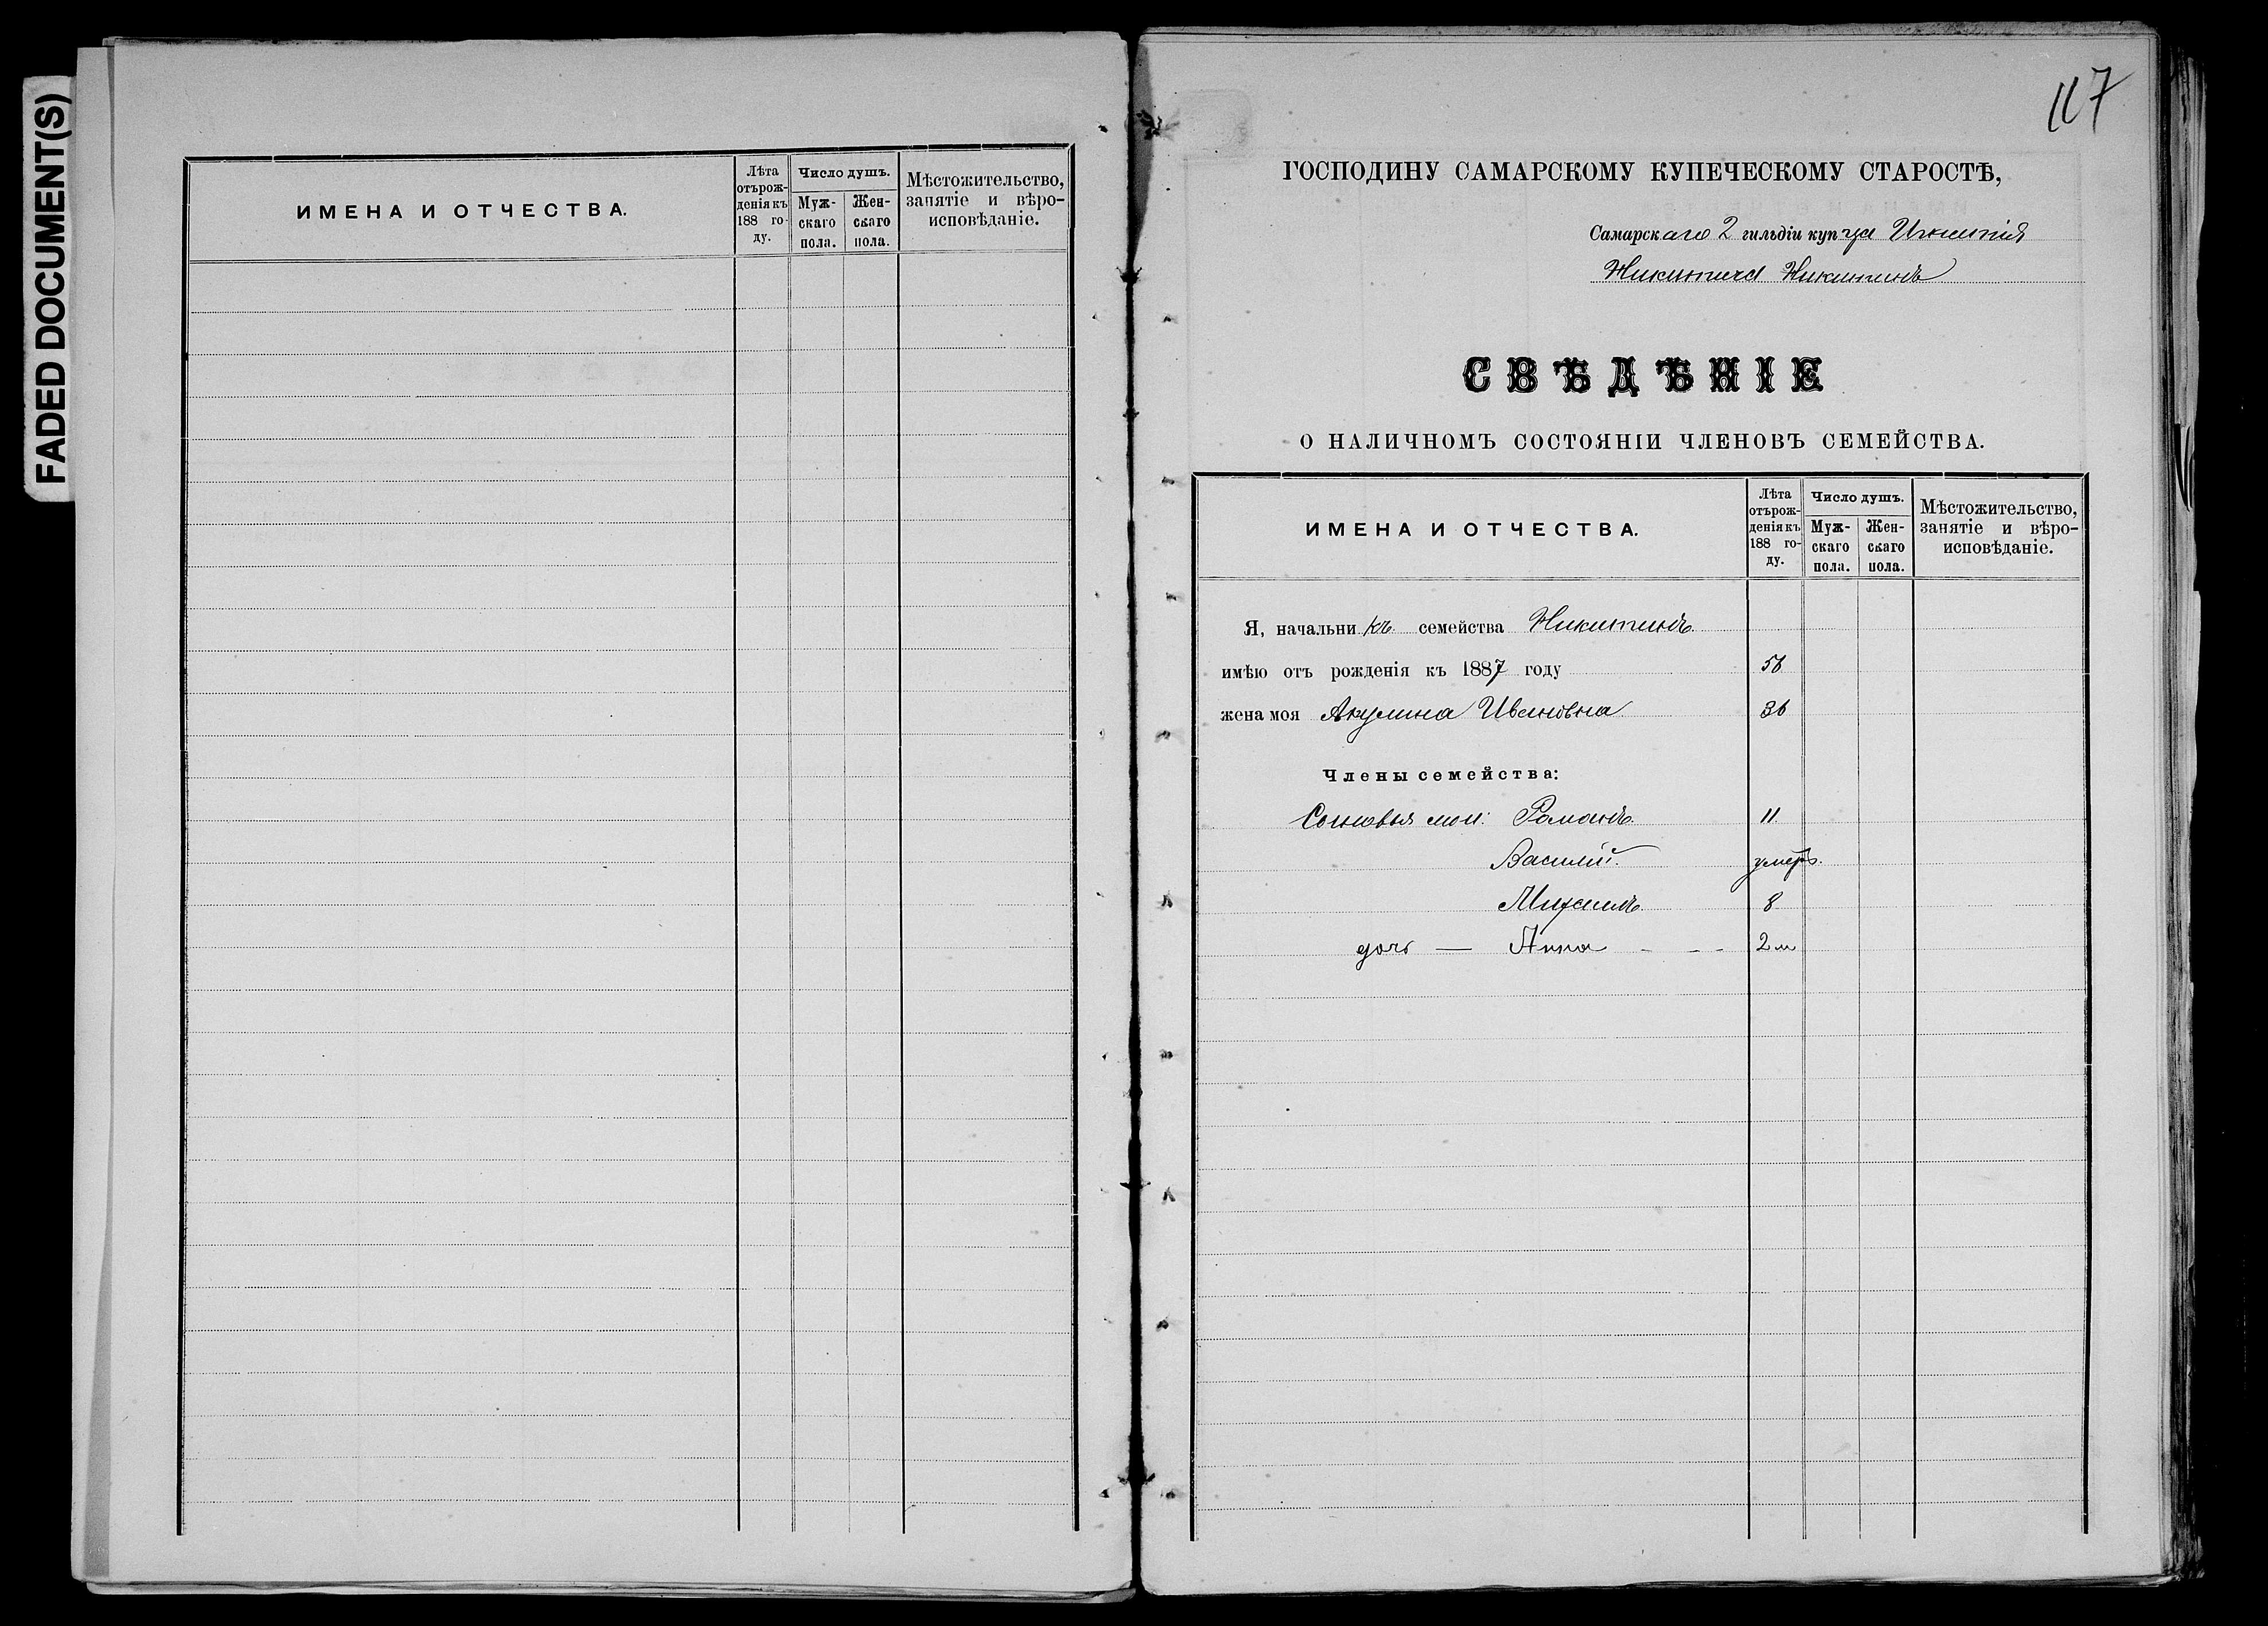 FADED DOCUMENT(S)
ИМЕНА И ОТЧЕСТВА.
Лѣта
отърож-
денія къ
188 го-
ду.
Число душъ.
Муж-
скаго
пола.
Жен-
скаго
пола.
Мѣстожительство,
занятіе и вѣро-
исповѣданіе.
117
ГОСПОДИНУ САМАРСКОМУ КУПЕЧЕСКОМУ СТАРОСТѢ,
Самарскаго 2 гильдіи купца Игнатія
Никитича Никитинъ
СВѢДѢНІЕ
О НАЛИЧНОМЪ СОСТОЯНІИ ЧЛЕНОВЪ СЕМЕЙСТВА.
ИМЕНА И ОТЧЕСТВА.
Лѣта
отърож-
денія къ
188 го-
ду.
Число душъ.
Муж-
скаго
пола.
Жен-
скаго
пола.
Мѣстожительство,
занятіе и вѣро-
исповѣданіе.
Я, начальникъ семейства Никитинъ
имѣю отъ рожденія къ 1887 году 56
жена моя Акулина Ивановна 36
Члены семейства:
Сыновья мои: Романъ 11
Василій. умеръ.
Михаилъ 8
дочь — Анна - - - 2 м